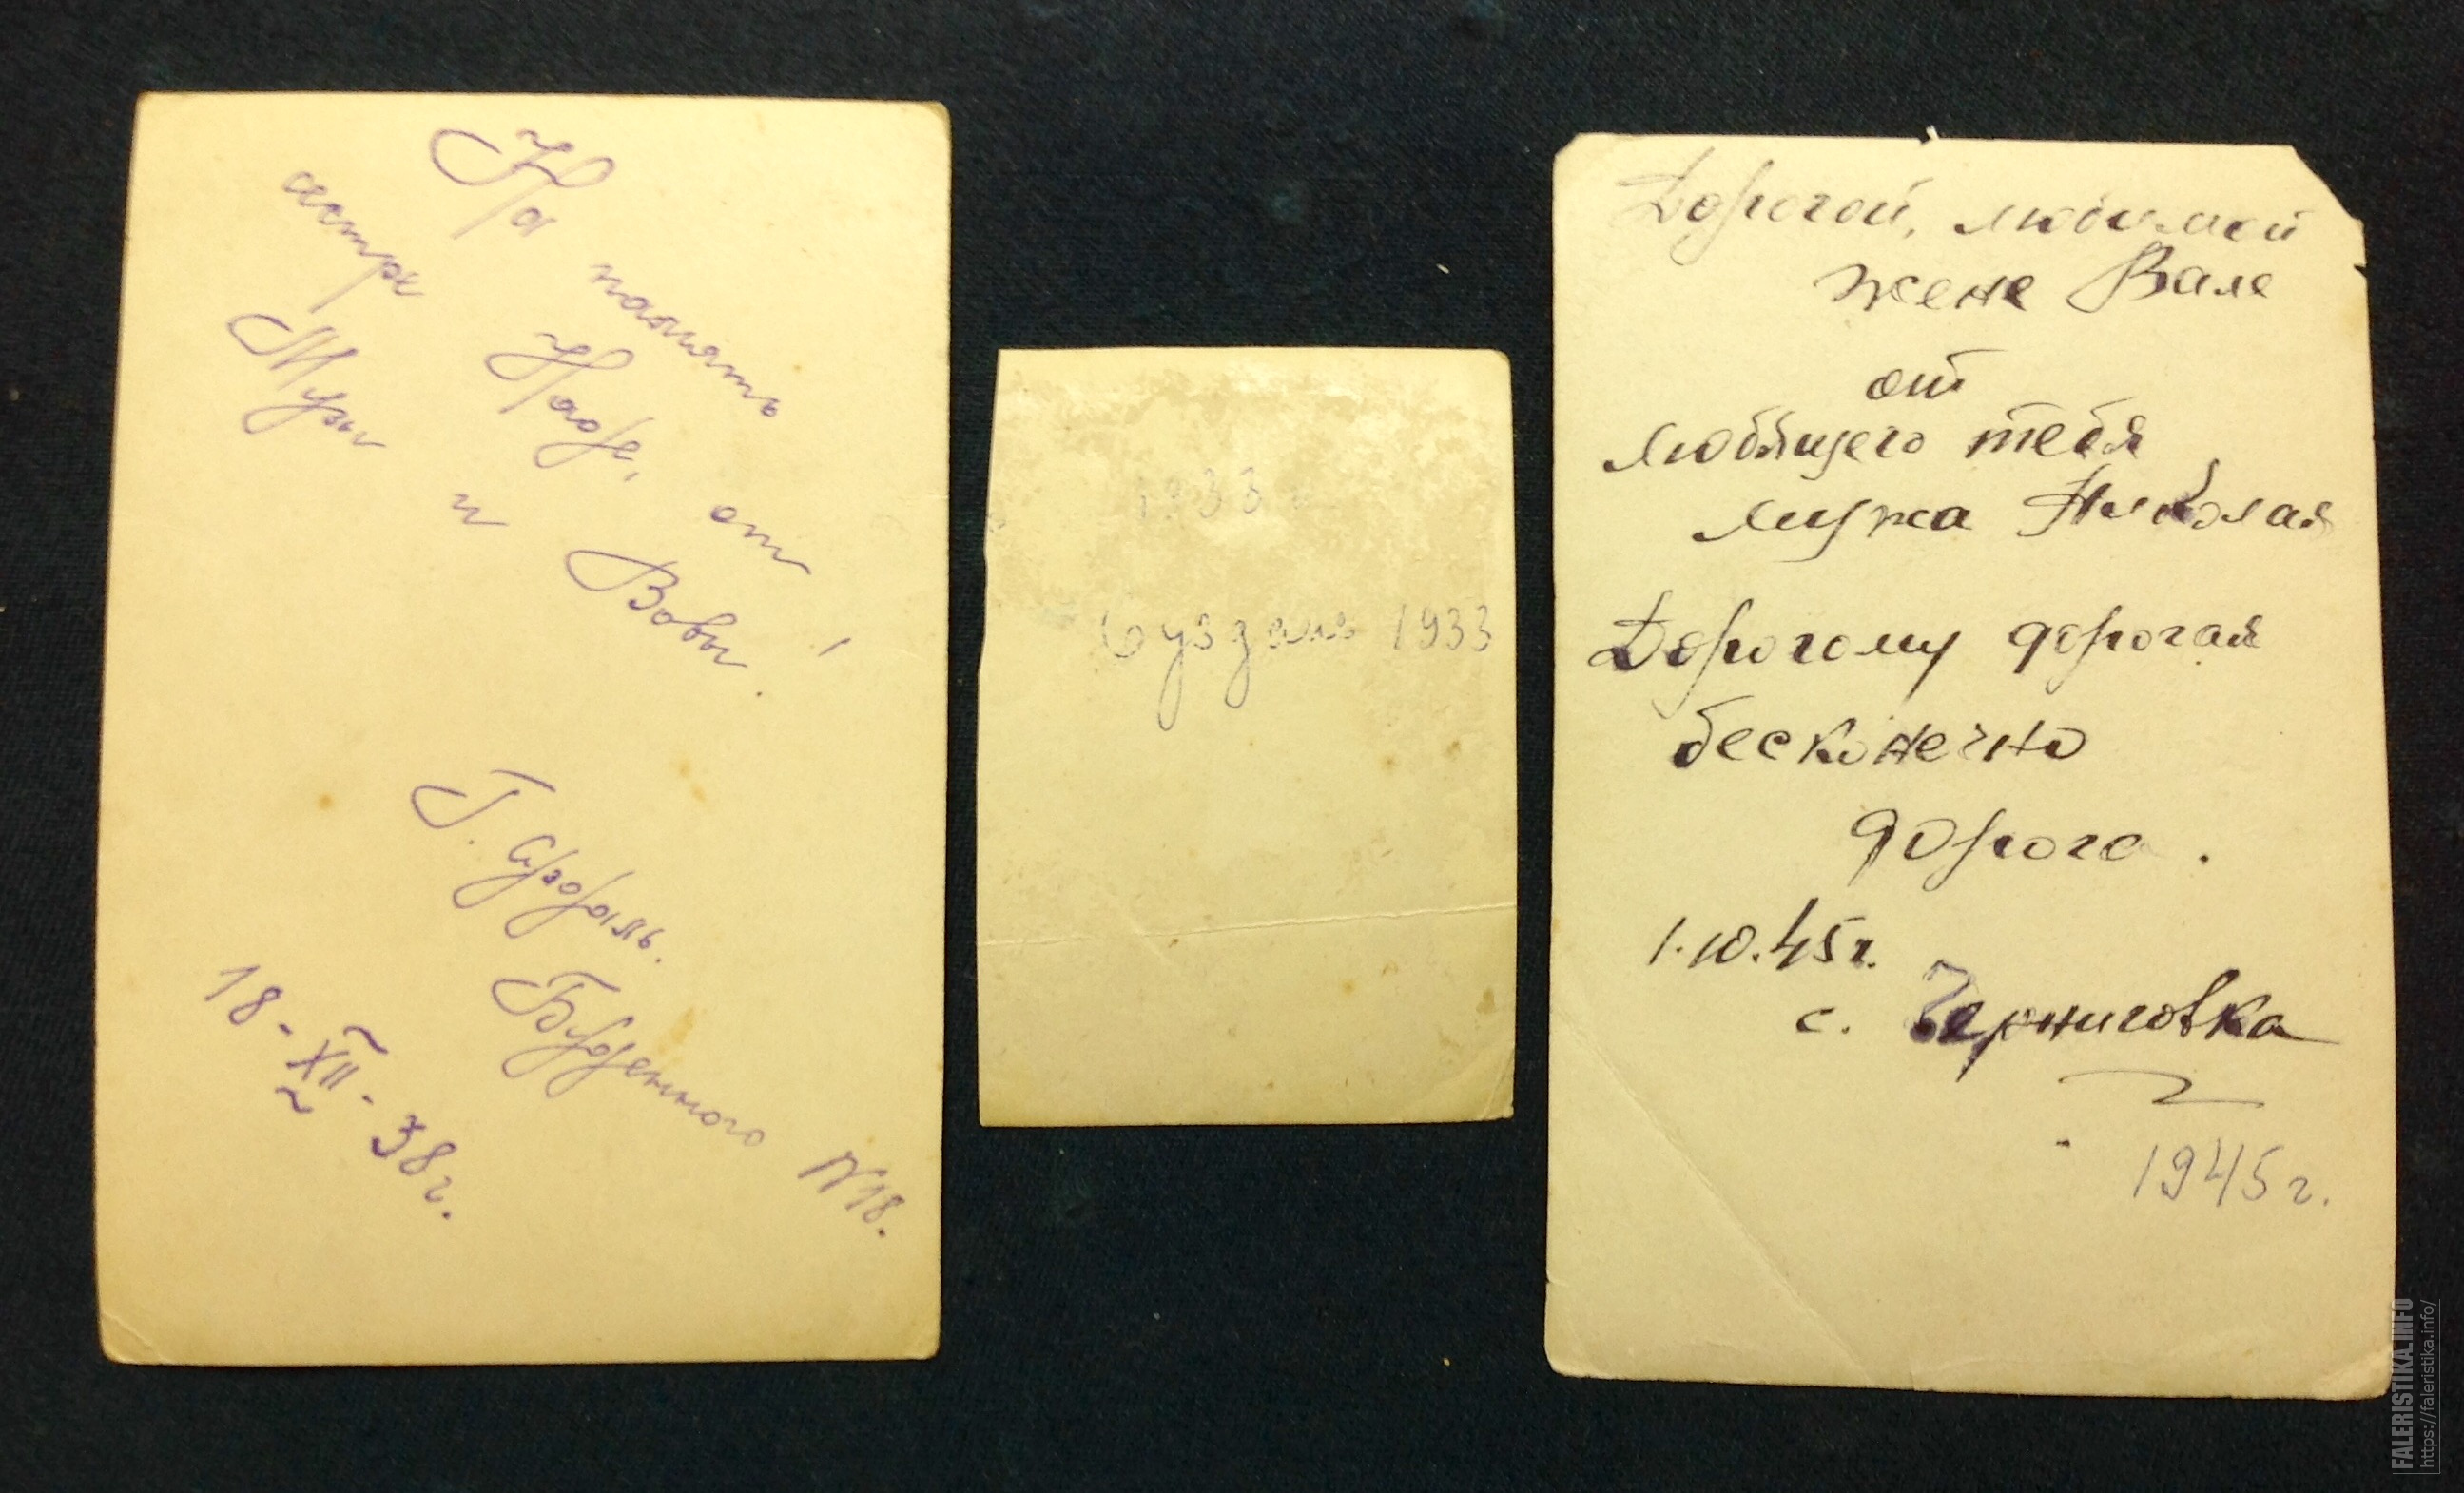 На память
сестре Наде, от
Музы и Вовы!
Г. Суздаль.
Буденного №18.
18-XII-38г.
1933 г
Суздаль 1933
Дорогой, любимой
жене Вале
от
любящего тебя
мужа Николая
Дорогому дорогая
бесконечно
дорога.
1.10.45г.
с. Черниговка
1945г.
FALERISTIKA.INFO
https://faleristika.info/